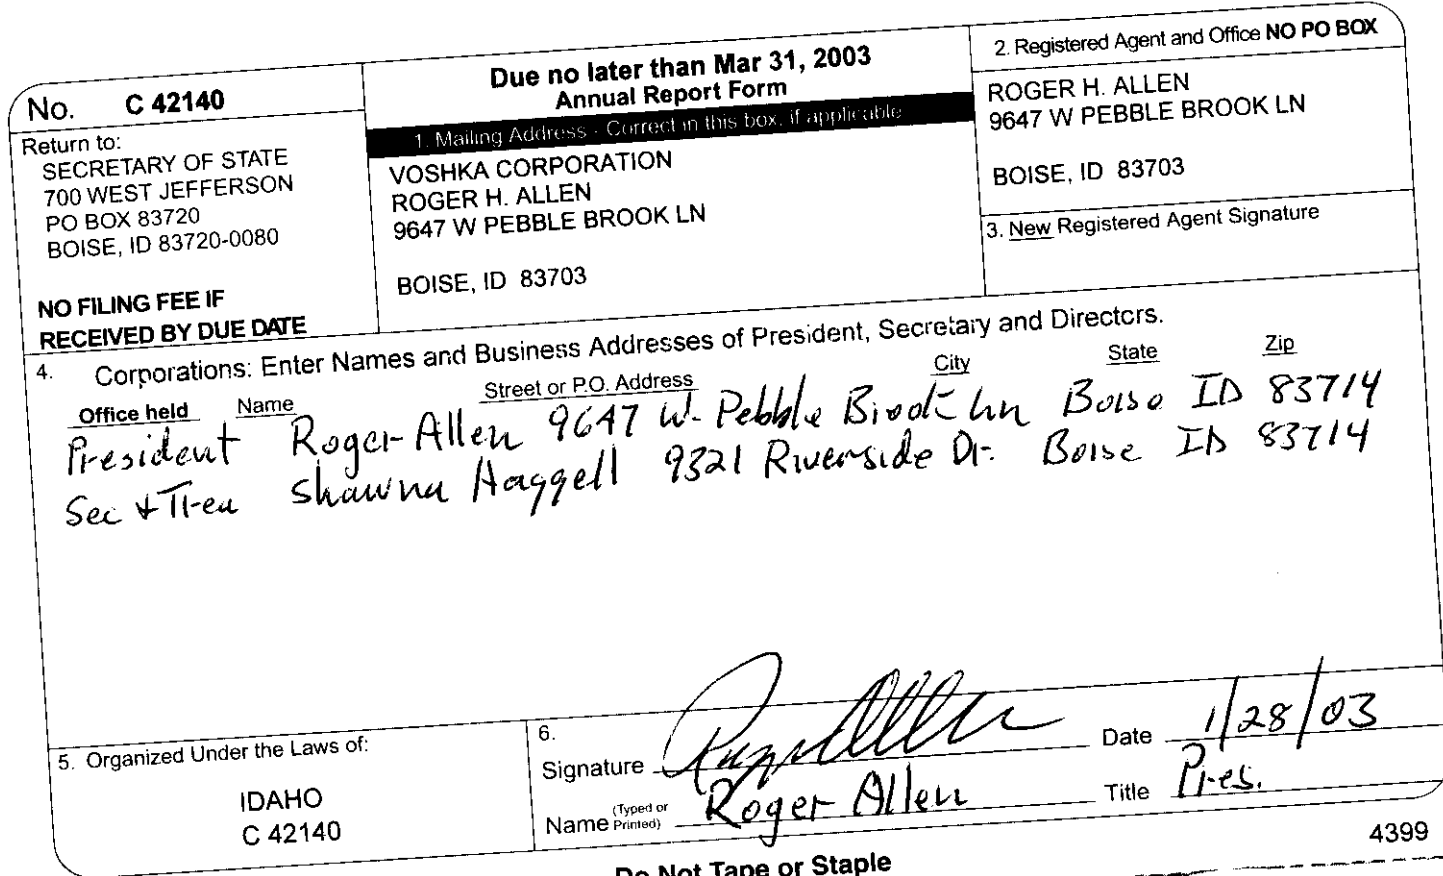 No. C 42140
Return to:
SECRETARY OF STATE
700 WEST JEFFERSON
PO BOX 83720
BOISE, ID 83720-0080
NO FILING FEE IF
RECEIVED BY DUE DATE
Due no later than Mar 31, 2003
Annual Report Form
1. Mailing Address - Correct in this box, if applicable
VOSHKA CORPORATION
ROGER H. ALLEN
9647 W PEBBLE BROOK LN
BOISE, ID 83703
2. Registered Agent and Office NO PO BOX
ROGER H. ALLEN
9647 W PEBBLE BROOK LN
BOISE, ID 83703
3. New Registered Agent Signature
4. Corporations: Enter Names and Business Addresses of President, Secretary and Directors.
Office held Name Street or P.O. Address City State Zip
President Roger Allen 9647 W. Pebble Brook Ln Boise ID 83714
Sec & Trea Shawna Haggell 9321 Riverside Dr. Boise ID 83714
5. Organized Under the Laws of:
IDAHO
C 42140
6.
Signature Roger Allen Date 1/28/03
Name (Typed or Printed) Roger Allen Title Pres.
4399
Do Not Tape or Staple